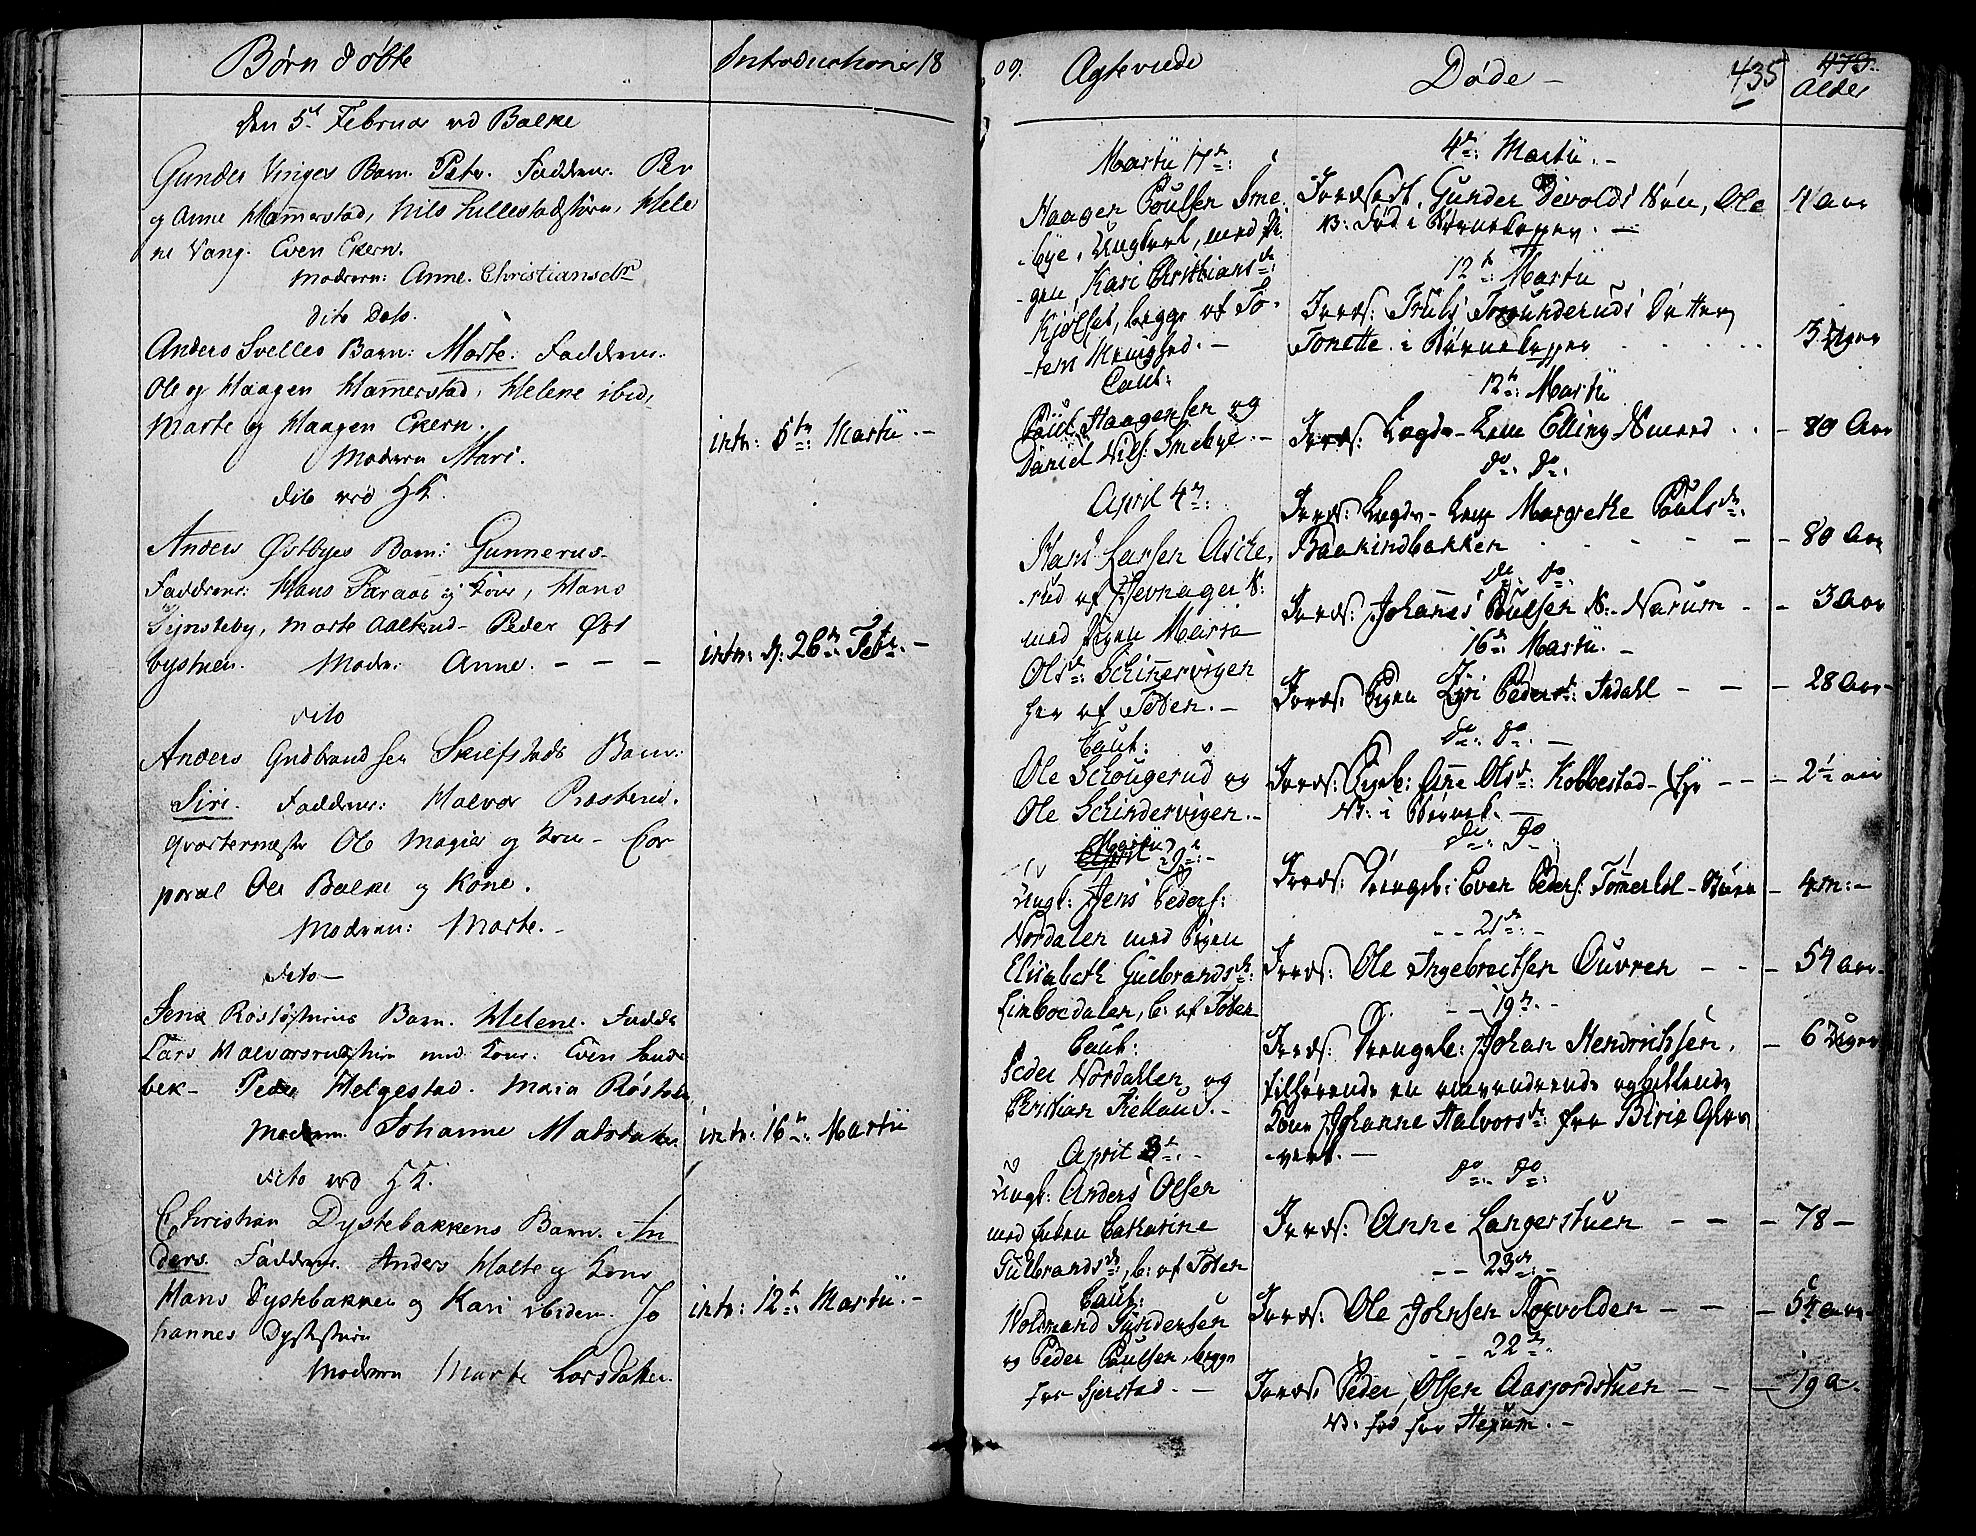 Børn Døbte
Introductioner 18
den 5t Februar ved Balke
Gunder Vinges Barn. Peter. Faddrene. Per
og Anne Hammerstad, Nils Lillestadstuen, Hele
ne Vang. Even Ekern.
Modren: Anne Christiansdr
dito Dato.
Anders Svelles Barn: Marte: Faddrene.
Ole og Haagen Hammerstad, Helene ibid,
Marte og Haagen Ekern.
Modren Mari.
intr: 5te Martii. -
dito ved HK.
Anders Østbyes Barn: Gunnerus-
Faddrene: Hans Faraas og Kone, Hans
Synsteby, Marte Aalsrud- Peder Øst
byetuen. Modr: Anne. - - -
intr: d: 26te Febr. -
dito
Anders Gudbrandsen Skiefstads Barn:
Siri. Faddrene: Halvor Præsterud.
qvartermester Ole Magier og Kone - Cor
poral Ole Balke og Kone.
Modren: Marte. -
dito -
Jens Røstøstuens Barn. Helene. Faddr
Lars Halvorsrudstuen med Kone: Even Sande
bek - Peder Helgestad. Maria Røstøen
Modren. Johanne Matsdatter.
intr: 16te Martii
dito ved HK.
Christian Dystebakkens Barn. An
ders. Faddrene. Anders Holte og Kone
Hans Dystebakken og Kari ibidem. Jo
hannes Dystestuen
Modren Marte Larsdatter.
intr: 12te Martii. -
09. Agteviede
Martii 17de:
Haagen Poulsen Sme-
-bye, Ungkarl, med Pi-
-gen Kari Christiansdr:
Kjølset, begge af To-
-tens Menighed. -
Caut:
Poul Haagensen og
Daniel Nils: Smebye. -
April 4de:
Hans Larsen Aske-
-rud af Jevnager S:
med Pigen Maria
Olsdr: Schinnervigen
her af Toten. -
Caut:
Ole Schougerud og
Ole Schindervigen. -
Martii
April 29: -
Ungk: Jens Peders:
Nordalen med Pigen
Elisabeth Gulbrandsdr:
Limboedalen, b: af Toten
Caut:
Peder Nordallen og
Christian Kielland. -
April 3de. -
Ungk: Anders Olsen
med Enken Catharine
Gulbrandsdr:, b: af Toten
Caut:
Wolmand Gundersen
og Peder Poulsen, begge
fra Gjerstad. -
Døde -
435
473.
Alder
4de: Martii. -
Jordfæst. Gunder Divolds Søn, Ole 4 Aar
NB: Død i Børnekopper. -
12te: Martii
Jords: Truls Togunderuds Datter
Tonette i Børnekopper . . . . . 3 Uger
12te: Martii
Jords: Lægds-Lem Elling Smerd . . - 80 Aar
do: do:
Jords: Lægds-Lem Margrethe Poulsdr:
Baakindbakken - - - - - 80 Aar
do: do:
Jords: Johannes Poulsen N: Narum - - 3 Aar
16de Martii. -
Jords: Pigen Lisi Pedersdr: Indahl - - - 28 Aar -
do: do: -
Jords: Pigeb: Anne Olsdr: Kobbestad - - - 2½ aar
NB: i Børnek. -
do: do
Jords: Drengeb: Even Peders: Tømerlel - - 4 m: -
- - 21de: -
Jords: Ole Ingebrectsen Ouvren - - - 54 aar -
- - 19de. -
Jords: Drengeb: Johan Hendrichsen, - 6 Uger
tilhørende en omvandrende og betlende
Kone Johanne Halvorsdr: fra Birie Glas-
-verk. -
do: do:
Jords: Anne Langerstuen - - - 78 -
- - 23de: -
Jords: Ole Johnsen Roxvolden - - - 54 aar -
- - 22de.
Jords: Peder Olsen Aasjordstuen - - - 19 a.
NB: død fra Hexum. -